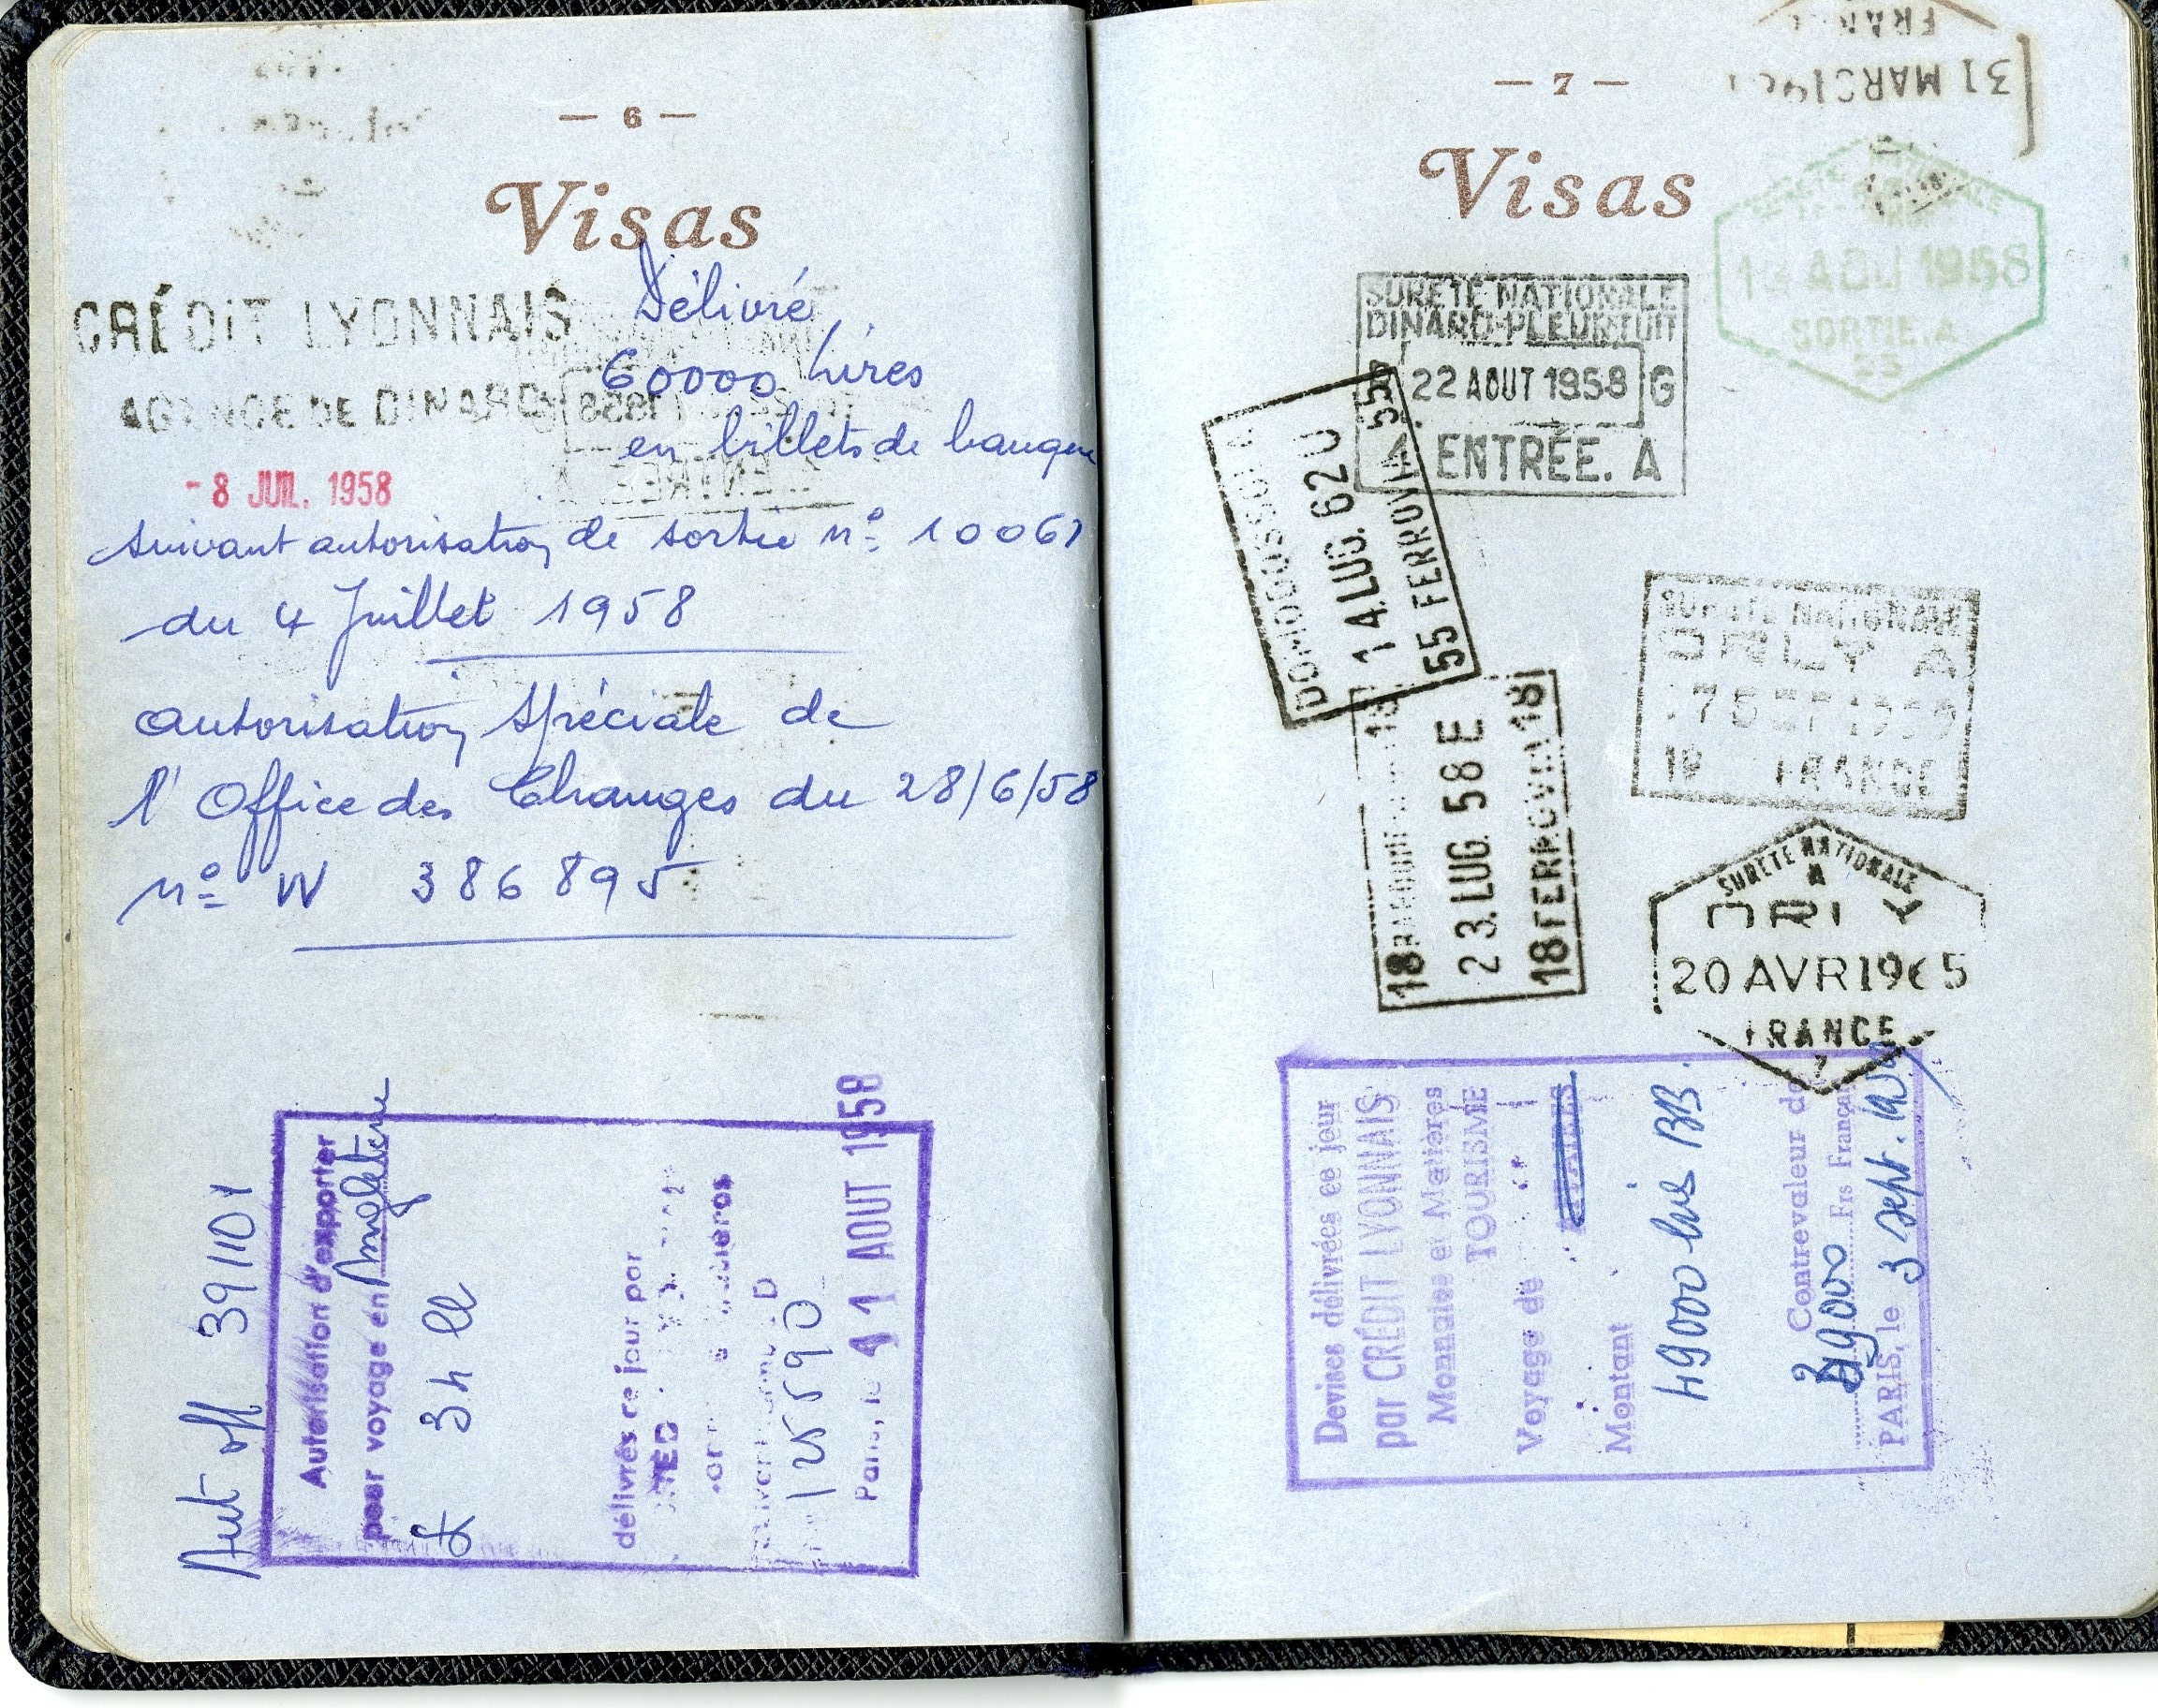 — 6 —
Visas
CRÉDIT LYONNAIS
AGENCE DE DINARD
- 8 JUIL. 1958
Délivré
60000 Lires
en billets de banque
suivant autorisation de sortie nº 10061
du 4 Juillet 1958
autorisation spéciale de
l'Office des Changes du 28/6/58
nº W 386895
Aut off 391101
Autorisation d'exporter
pour voyage en Angleterre
£ 34
délivrés ce jour par
Paris, le 11 AOUT 1958
— 7 —
Visas
31 MARS
SURETE NATIONALE
AOU 1958
SORTIE. A
SURETE NATIONALE
DINARD-PLEURTUIT
22 AOUT 1958 G
ENTRÉE. A
DOMODOSSOLA
14 LUG. 62 U
55 FERROVIA 55
SURETE NATIONALE
ORLY A
FRANCE
18
23. LUG. 58 E
18 FERROVIA 18
SURETE NATIONALE
ORLY
20 AVR 1965
FRANCE
Devises délivrées ce jour
par CRÉDIT LYONNAIS
Monnaies et Matières
TOURISME
Voyage de
Montant
49000 lires BB.
Contrevaleur de
Frs Français
PARIS, le 3 sept.